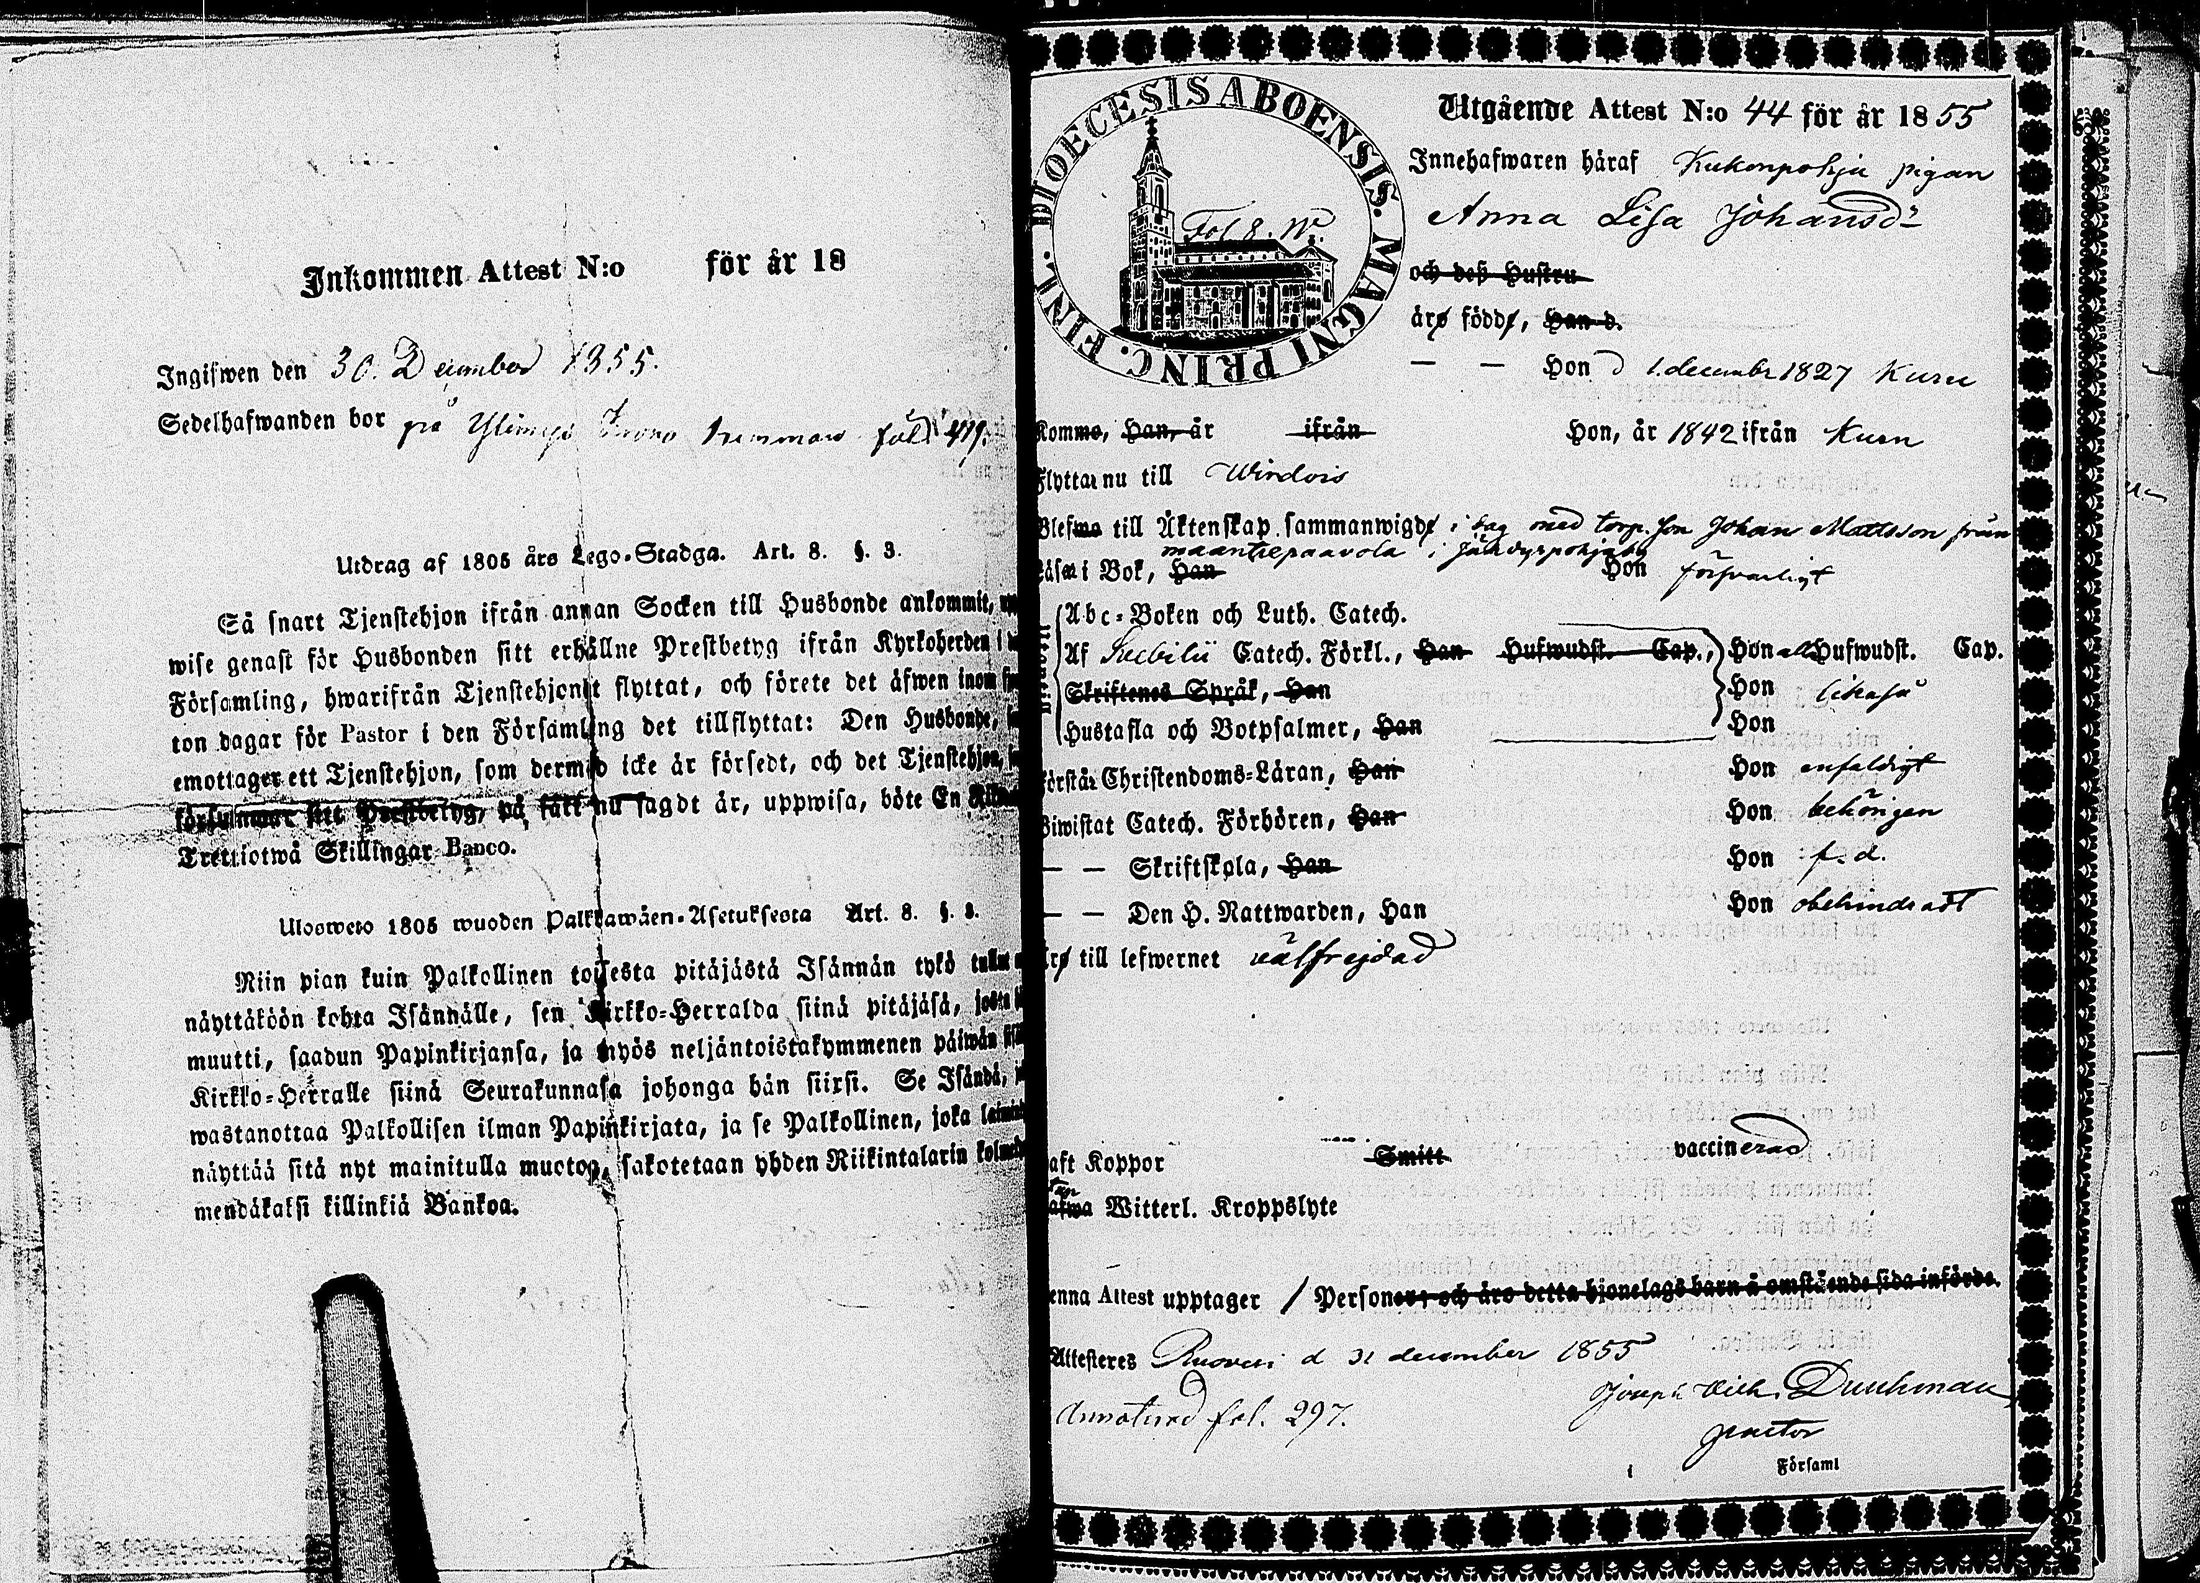 Inkommen Attest N:o för år 18
Ingifwen den 30. December 1855.
Sedelhafwanden bor på fol 419.
Utdrag af 1805 års Lego-Stadga. Art. 8. §. 3.
Så snart Tjenstehjon ifrån annan Socken till Husbonde ankommit,
wise genast för Husbonden sitt erhållne Prestbetyg ifrån Kyrkoherden i
Församling, hwarifrån Tjenstehjonet flyttat, och förete det äfwen inom
ton dagar för Pastor i den Församling det tillflyttat: Den Husbonde,
emottager ett Tjenstehjon, som dermed icke är försedt, och det Tjenstehjon,
försummar sitt Prestbetyg, på sätt nu sagdt är, uppwisa, böte En
Trettiotwå Skillingar Banco.
Ulosweto 1805 wuoden Palkkawäen-Asetuksesta Art. 8. §. 3.
Niin pian kuin Palkollinen toisesta pitäjästä Isännän tykö tullut
näyttäköön kohta Isännälle, sen Kirkko-Herralda siinä pitäjäsä, josta
muutti, saadun Papinkirjansa, ja myös neljäntoistakymmenen päiwän
Kirkko-Herralle siinä Seurakunnasa johonga hän siirsi. Se Isändä,
wastanottaa Palkollisen ilman Papinkirjata, ja se Palkollinen, joka
näyttää sitä nyt mainitulla muotoa, sakotetaan yhden Riikintalarin
mendäkaksi killinkiä Bankoa.
DIOECESIS ABOENSIS. MAGNI PRINC. FINL.
Fol 8.
Utgående Attest N:o 44 för år 1855
Innehafwaren häraf Kukonpohja pigan
Anna Lisa Johansdr
och deß Hustru
äro födde, Han d.
— — Hon d 1. decembr 1827 Kuru
Komme, Han, år ifrån Hon, år 1842 ifrån Kuru
Flyttar nu till Wirdois
Blefwo till Äktenskap sammanwigde i dag med torp. son Johan Mattsson från
maantiepaavola i Jäähdyspohja by
Läser i Bok, Han Hon försvarligt
Abc-Boken och Luth. Catech.
Af Svebilii Catech. Förkl., Han Hufwudst. Cap., Hon all Hufwudst. Cap.
Skriftenes Språk, Han Hon likaså
Hustafla och Botpsalmer, Han Hon
Förstår Christendoms-Läran, Han Hon enfaldigt
Biwistat Catech. Förhören, Han Hon behörigen
— — Skriftskola, Han Hon f. d.
— — Den H. Nattwarden, Han Hon obehindradt
Äro till lefwernet välfrejdad
Haft Koppor Smitt vaccinerad
Witterl. Kroppslyte
Denna Attest upptager 1 Personer, och äro detta hjonelags barn å omstående sida införde.
Attesteres Ruovesi d 31 december 1855
Joseph Vilh. Duuhman
Annoterad fol. 297.
pastor
i Församl